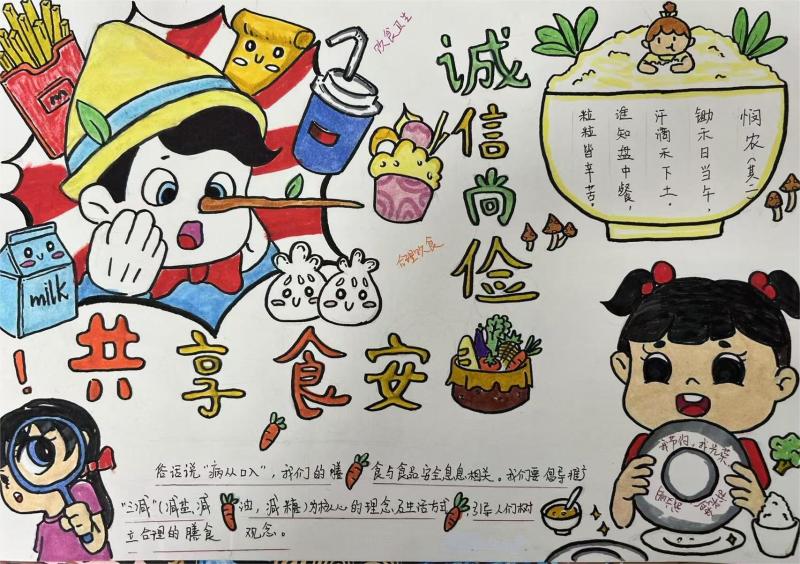 饮食卫生
诚
信
尚
俭
合理饮食
悯农(其二)
锄禾日当午，
汗滴禾下土。
谁知盘中餐，
粒粒皆辛苦。
milk
！共享食安
我节约，我光荣
俗话说“病从口入”，我们的膳食与食品安全息息相关。我们要倡导推广
“三减”(减盐，减油，减糖)为核心的理念及生活方式，引导人们树
立合理的膳食观念。